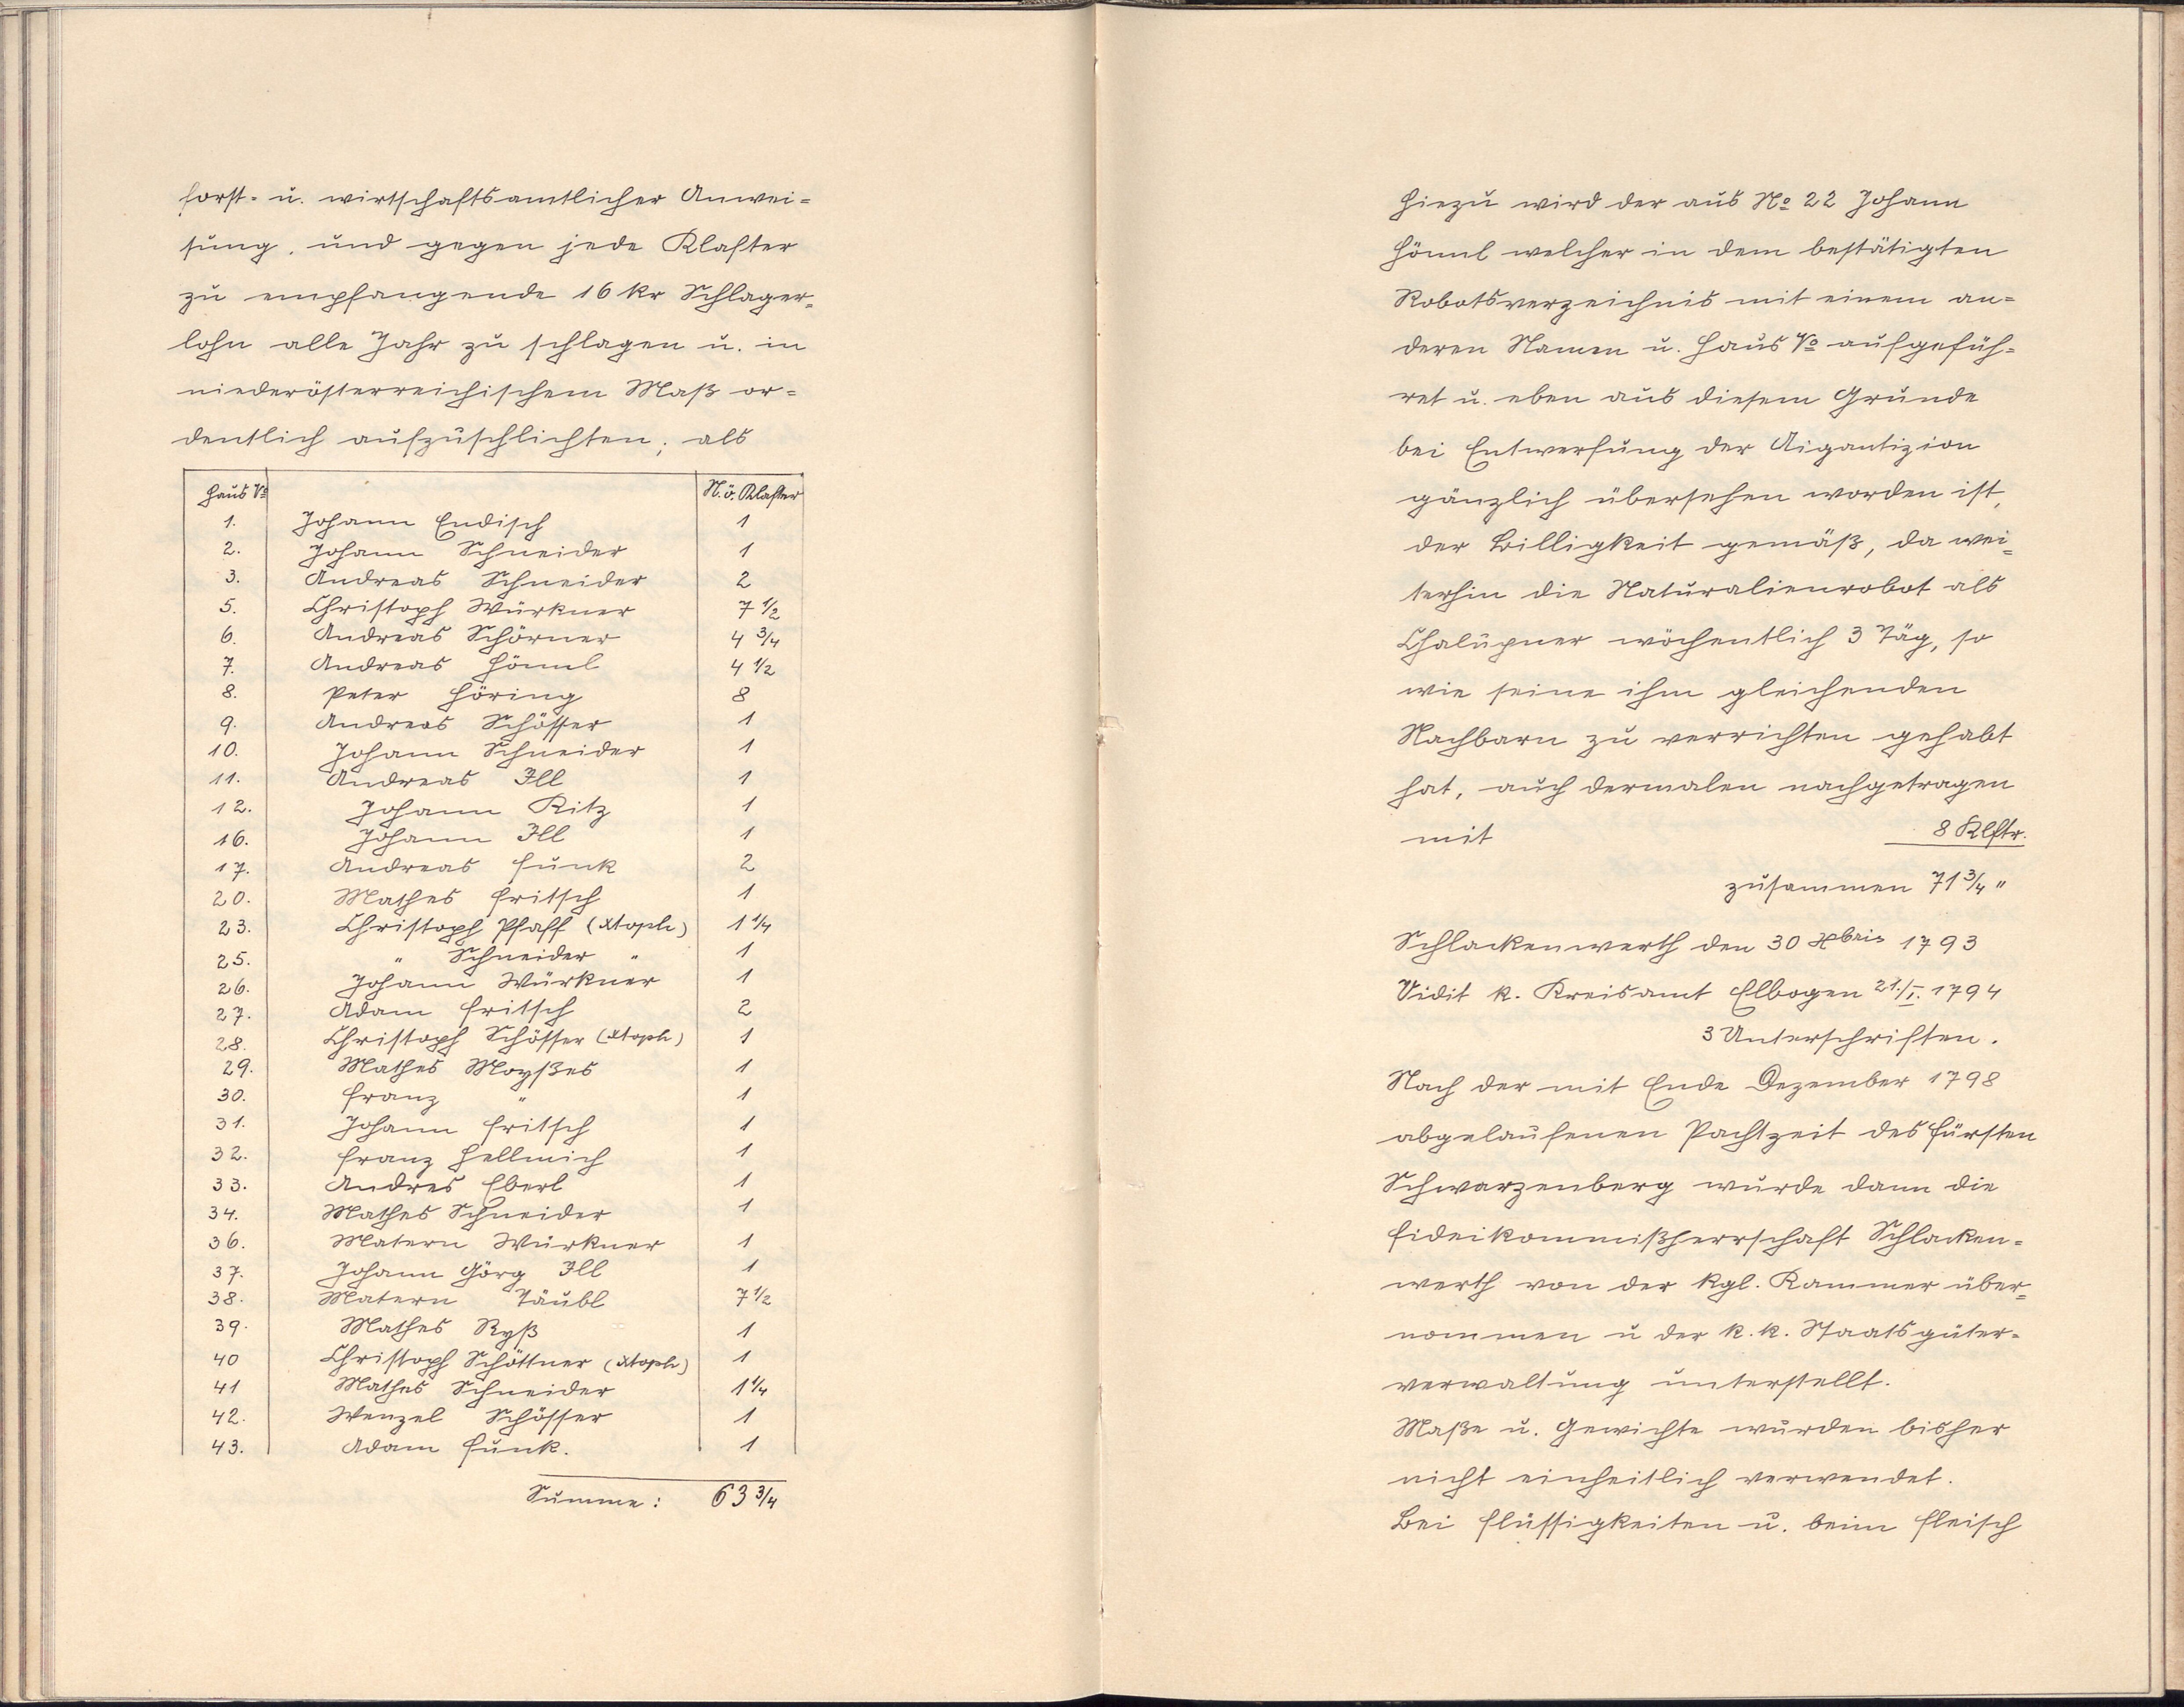 forst- u. wirtschaftsamtlicher Anwei=
sung, und gegen jede Klafter
zu empfangende 16 kr Schlager=
lohn alle Jahr zu schlagen u. in
niederösterreichischem Maß or=
dentlich aufzuschlichten; als
Haus No N.ö. Klafter
1. Johann Endisch 1
2. Johann Schneider 1
3. Andreas Schneider 2
5. Christoph Würkner 7 1/2
6. Andreas Schörner 4 3/4
7. Andreas Hönnl 4 1/2
8. Peter Höring 8
9. Andreas Schösser 1
10. Johann Schneider 1
11. Andreas Ill 1
12. Johann Ritz 1
16. Johann Ill 1
17. Andreas Funk 2
20. Mathes Fritsch 1
23. Christoph Pfaff (Xtoph) 1 1/4
25. " Schneider " 1
26. Johann Würkner 1
27. Adam Fritsch 2
28. Christoph Schösser (Xtoph) 1
29. Mathes Moyßes 1
30. Franz " 1
31. Johann Fritsch 1
32. Franz Hellmich 1
33. Andres Eberl 1
34. Mathes Schneider 1
36. Matern Würkner 1
37. Johann Görg Ill 1
38. Matern Täubl 7 1/2
39. Mathes Ryß 1
40 Christoph Schöttner (Xtoph) 1
41 Mathes Schneider 1 1/4
42. Wenzel Schösser 1
43. Adam Funk. 1
Summe: 63 3/4
Hiezu wird der aus No 22 Johann
Hönnl welcher in dem bestätigten
Robotsverzeichnis mit einem an=
deren Namen u. Haus No aufgefüh=
ret u. eben aus diesem Grunde
bei Entwerfung der
gänzlich übersehen worden ist,
der Billigkeit gemäß, da wei=
terhin die Naturalienrobot als
Chalupner wöchentlich 3 Täg, so
wie seine ihm gleichenden
Nachbarn zu verrichten gehabt
hat, auch dermalen nachgetragen
mit 8 Klftr.
zusammen 71 3/4 "
Schlackenwerth den 30 Xbris 1793
Vidit k. Kreisamt Elbogen 21./I. 1794
3 Unterschriften.
Nach der mit Ende Dezember 1798
abgelaufenen Pachtzeit des Fürsten
Schwarzenberg wurde dann die
Fideikommißherrschaft Schlacken=
werth von der kgl. Kammer über=
nommen u der k.k. Staatsgüter=
verwaltung unterstellt.
Maße u. Gewichte wurden bisher
nicht einheitlich verwendet.
Bei Flüssigkeiten u. beim Fleisch